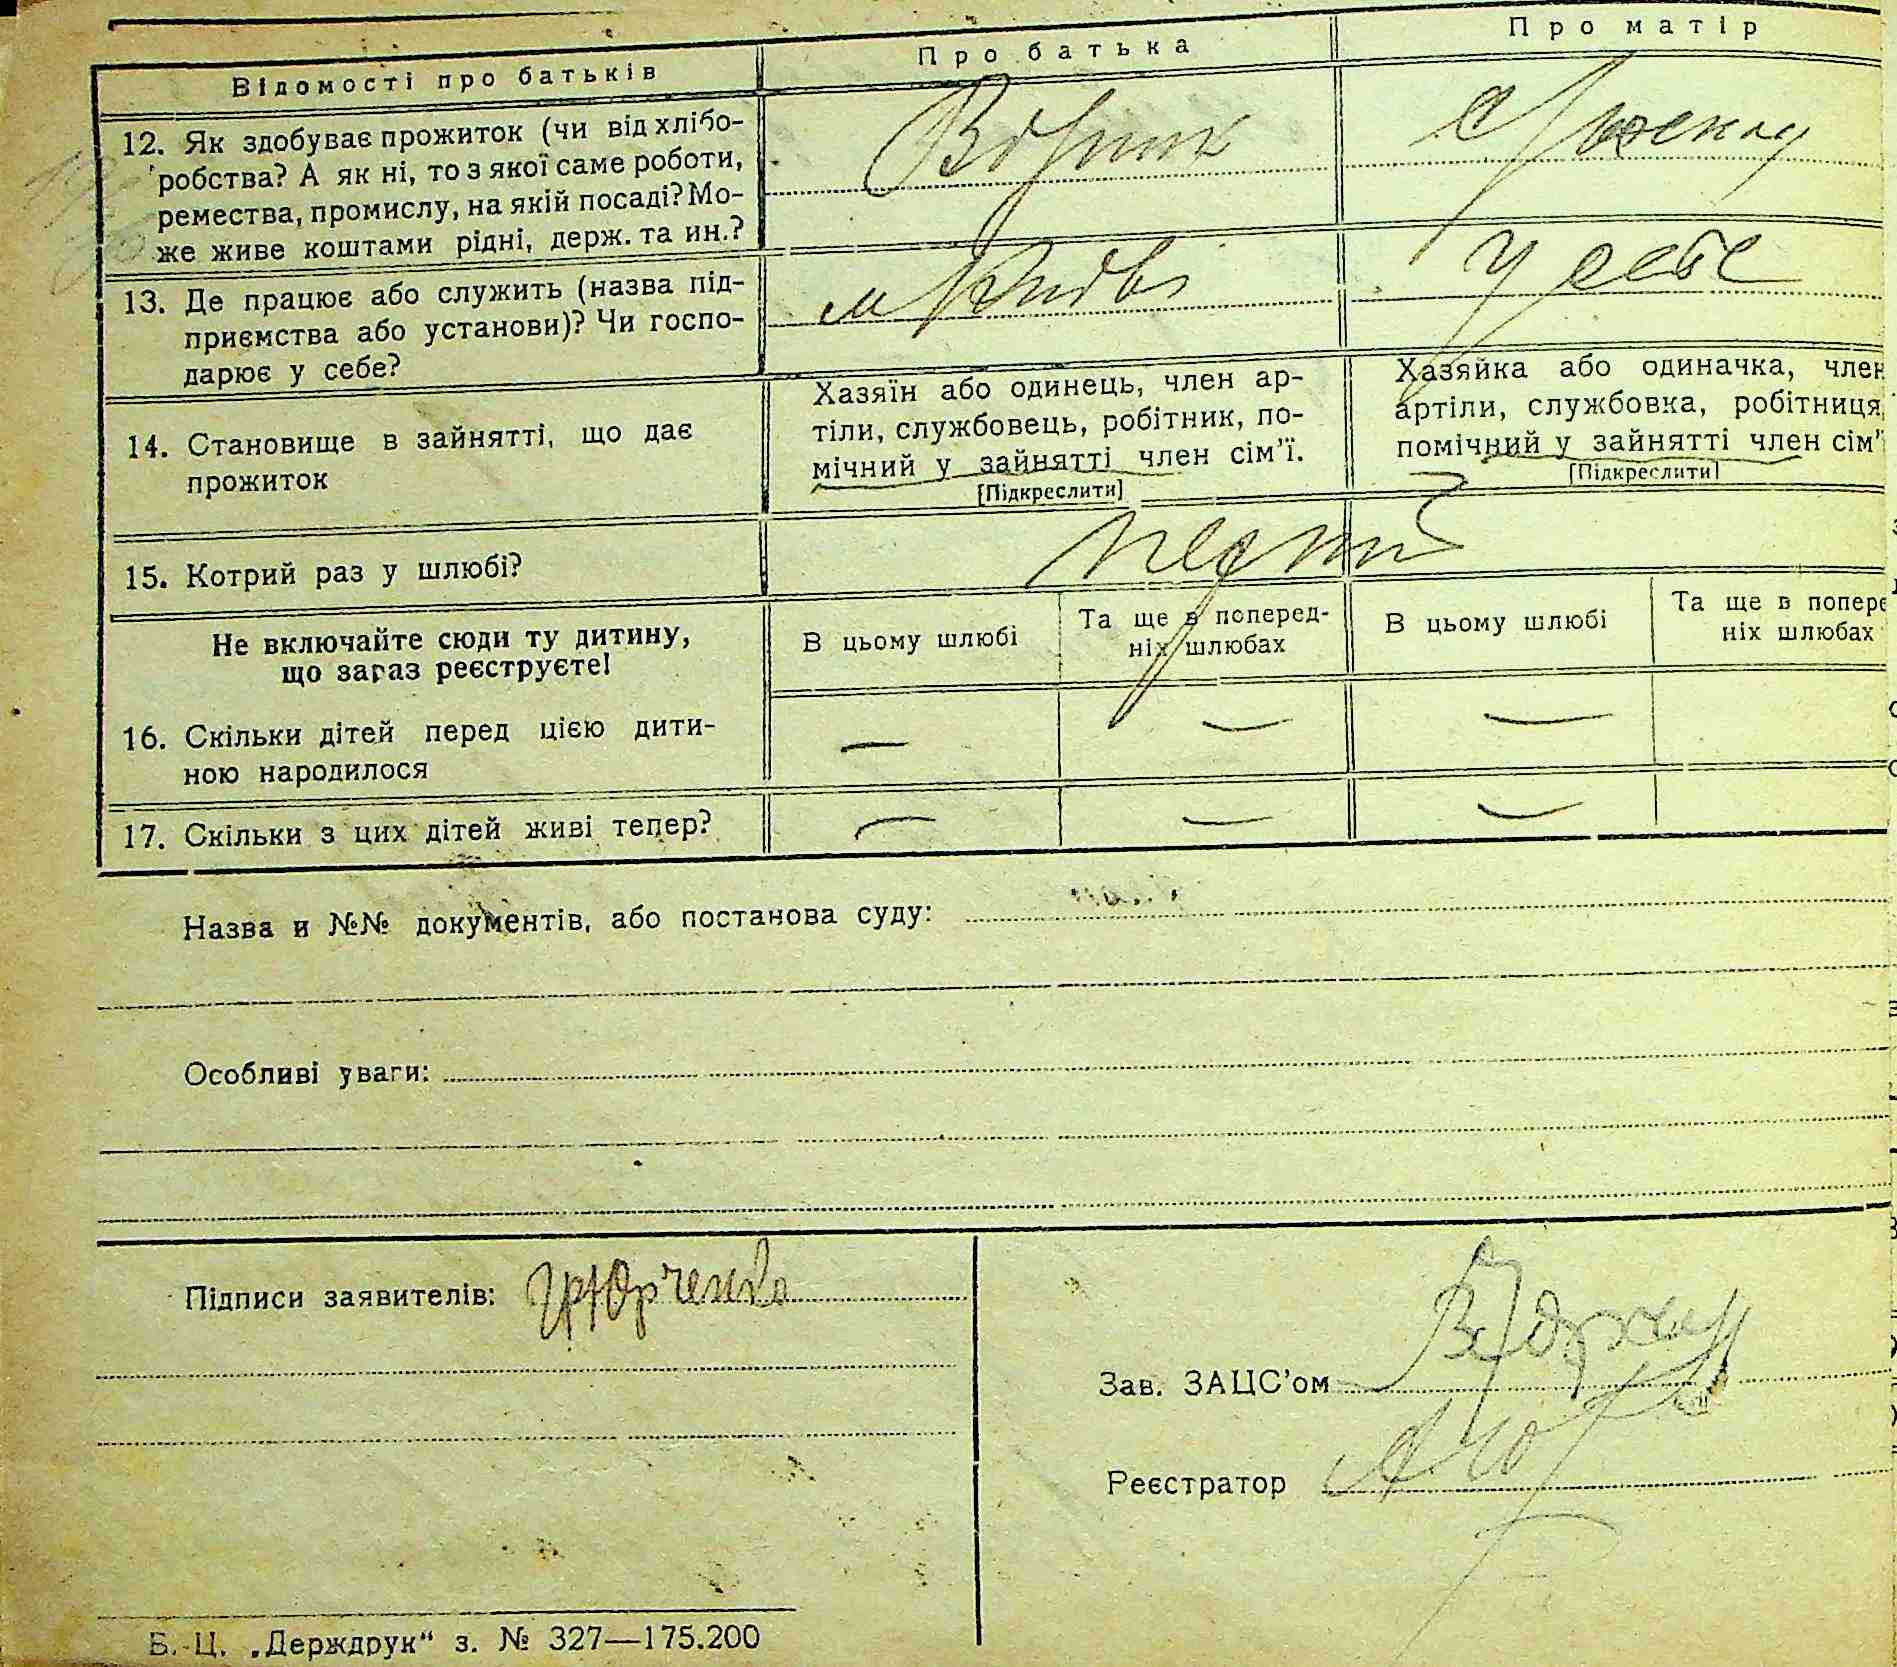 Відомості про батьків
Про батька
Про матір
12. Як здобуває прожиток (чи від хлібо-
робства? А як ні, то з якої саме роботи,
ремества, промислу, на якій посаді? Мо-
же живе коштами рідні, держ. та ин.?
13. Де працює або служить (назва під-
приємства або установи)? Чи госпо-
дарює у себе?
м Києві
у себе
14. Становище в зайнятті, що дає
прожиток
Хазяїн або одинець, член ар-
тіли, службовець, робітник, по-
мічний у зайнятті член сім'ї.
[Підкреслити]
Хазяйка або одиначка, член
артіли, службовка, робітниця,
помічний у зайнятті член сім'ї
[Підкреслити]
15. Котрий раз у шлюбі?
перший
Не включайте сюди ту дитину,
що зараз реєструєте!
В цьому шлюбі
Та ще в поперед-
ніх шлюбах
В цьому шлюбі
Та ще в попере
ніх шлюбах
16. Скільки дітей перед цією дити-
ною народилося
— — —
17. Скільки з цих дітей живі тепер?
— — —
Назва и №№ документів, або постанова суду:
Особливі уваги:
Підписи заявителів: Юрченко
Зав. ЗАЦС'ом
Реєстратор
Б.-Ц. „Держдрук“ з. № 327—175.200